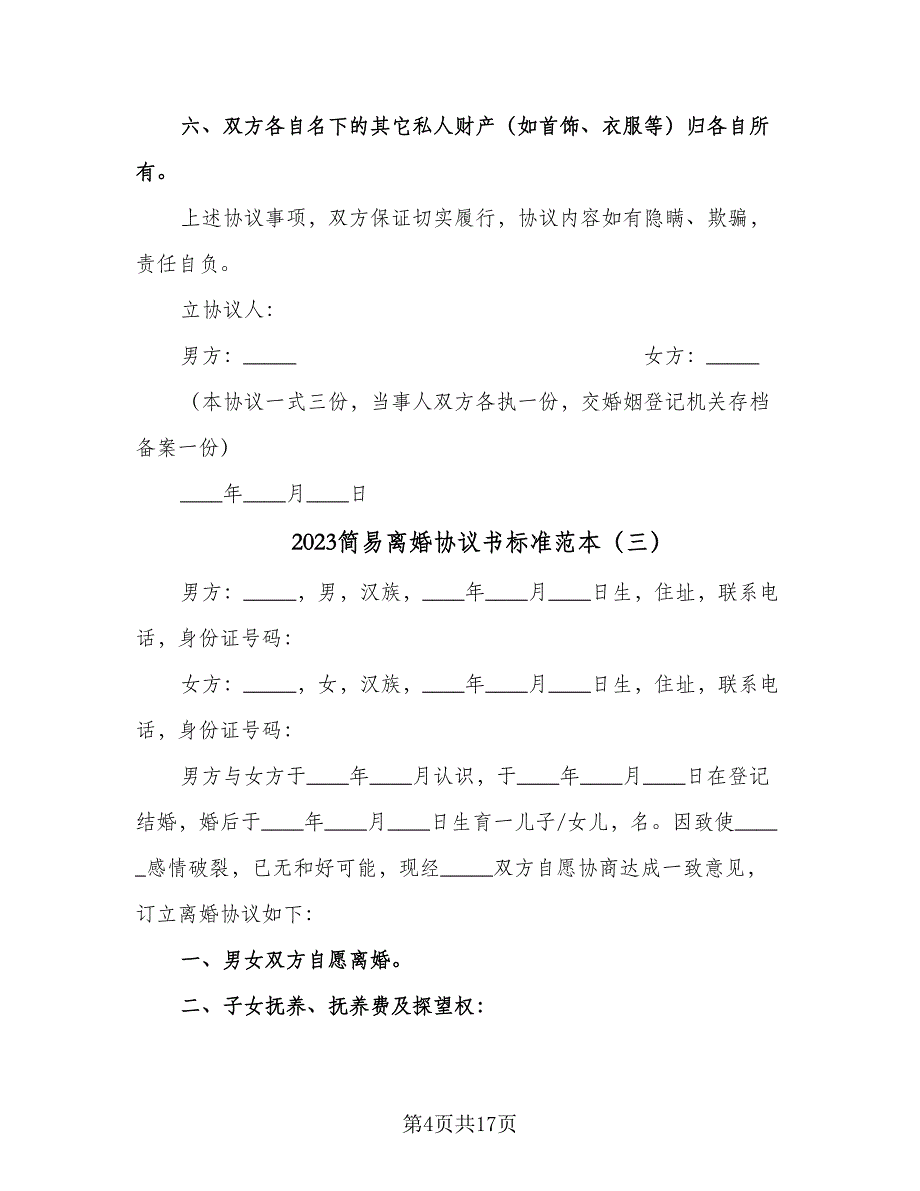 六、双方各自名下的其它私人财产（如首饰、衣服等）归各自所
有。
上述协议事项，双方保证切实履行，协议内容如有隐瞒、欺骗，
责任自负。
立协议人：
男方：_____ 女方：_____
（本协议一式三份，当事人双方各执一份，交婚姻登记机关存档
备案一份）
____年____月____日
2023简易离婚协议书标准范本（三）
男方：_____，男，汉族，____年____月____日生，住址，联系电
话，身份证号码：
女方：_____，女，汉族，____年____月____日生，住址，联系电
话，身份证号码：
男方与女方于____年____月认识，于____年____月____日在登记
结婚，婚后于____年____月____日生育一儿子/女儿，名。因致使____
_感情破裂，已无和好可能，现经_____双方自愿协商达成一致意见，
订立离婚协议如下：
一、男女双方自愿离婚。
二、子女抚养、抚养费及探望权：
第4页共17页